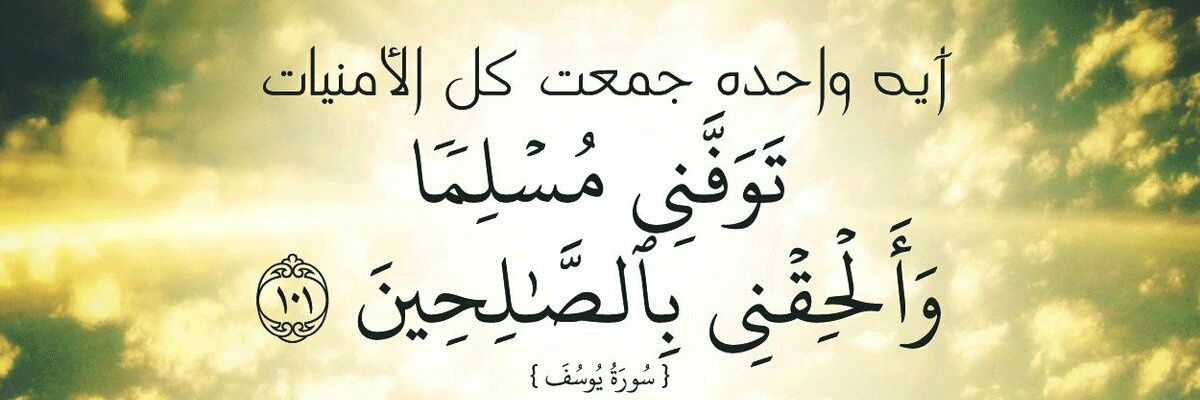 أيه واحده جمعت كل الأمنيات
تَوَفَّنِي مُسْلِمَا
وَأَلْحِقْنِي بِٱلصَّٰلِحِينَ ١٠١
{ سُورَةُ يُوسُفَ }